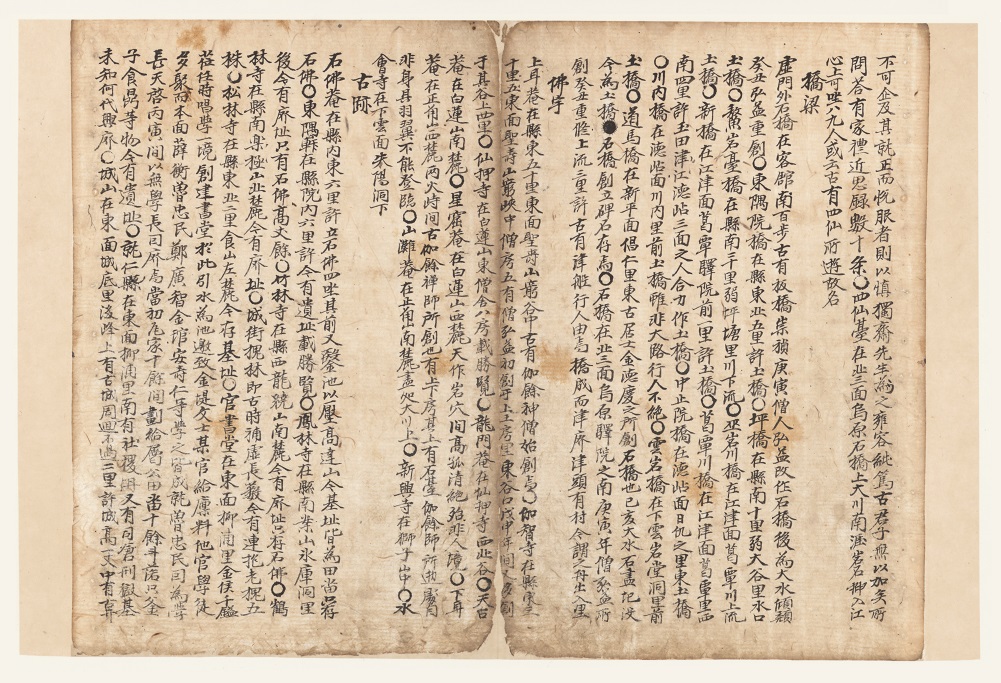 不可企及其就正而悅服者則以愼獨齋先生爲之雍容純篤古君子無以加矣所
問答有家禮近思錄數十條〇四仙基在北三面烏原石橋上大川南涯岩石抑入江
心上可坐六九人或云古有四仙所遊故名
橋梁
虛門外石橋在客館南百步古有板橋崇禎庚寅僧人弘益改作石橋後爲大水傾頹
癸丑弘益重創〇東隅院橋在縣東北五里許土橋〇坪橋在縣南十里弱大谷里水口
土橋〇鰲岩臺橋在縣南三千里弱坪塘里川下流〇亚岩川橋在江津面葛覃川上流
土橋〇新橋在江津面葛覃驛院前一里許土橋〇葛覃川橋在江津面葛覃里西
南四里許玉田津江德峙三面之人合力作土橋〇中止院橋在德峙面日仇之里東土橋
〇川內橋在德峙面川內里前土橋雖非大路行人不絶〇雲岩橋在下雲岩堂洞里前
土橋〇道馬橋在新平面倡仁里東古居士金德慶之所創石橋也己亥大水石盡圮沒
今爲土橋 石橋創立碑石存焉〇石橋在北三面烏原驛院之南庚寅年僧弘益所
創癸丑重修上流三里許古有津船行人由焉橋成而津廢津頭有村今謂之舟出入里
佛宇
上耳菴在縣東五十里東面聖壽山窮谷中古有伽餘神僧始創焉〇伽智寺在縣東三
十里五東面聖壽山窮峽中僧房五有僧弘益初創于上工房里東谷口戊申年間又多創
于其谷上四里〇仙押寺在白蓮山東僧舍八房載勝覽〇龍門菴在仙押寺西北谷〇天台
菴在白蓮山南麓〇星宿菴在白蓮山西麓天作岩穴間高孤淸絶殆非人境〇下耳
菴在正角山西麓兩火時間古伽餘禪師所創也有上下房基上有石臺伽餘師所坳處苟
非身具羽翼不能登臨〇山灘菴在正角山南麓盡處大川上〇新興寺在獅子山中〇水
會寺在下雲面朱陽洞下
古跡
石佛菴在縣內東六里許立石佛四坐其前又鑿池以壓高達山今基址皆爲田畓存
石佛〇東隅薜在縣院內六里許今有遺址載勝覽〇鳳林寺在縣南栗山氷庫洞里
後今有廢址只有石佛高丈餘〇竹林寺在縣西龍蹺山南麓今有廢址只存石佛〇鶴
林寺在縣南樂極山北麓今有廢址〇城街槐林即古時補虛長藪今有連抱老槐五
株〇松林寺在縣東北二里食山左麓今存基址〇官書堂在東面抑浦里金侯千鎰
莅任時唱學一境創建書堂於此引水爲池邀致金堤文士某官給廩料他官學徒
多聚而本面薛衡曾忠民鄭廣智金琯安壽仁等學之皆成就曾忠民司爲學
長天啓丙寅間以無學長司斥焉當初瓦家十餘間劃給屬公田畓十餘斗諾只全
子食器等物今有遺址〇乾仁縣在東面抑浦里南有社稷又有司倉刑獄基
未知何代廢〇城山在東面城底里後峰上有古城周廻不過二里許城高一丈中有古